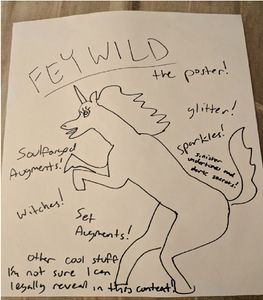 FEYWILD
the poster!
glitter!
Sparkles!
Sinister
undertones and
dark secrets!
Soulforged
Augments!
Witches!
Set
Augments!
Other cool stuff
I'm not sure I can
legally reveal in this context!